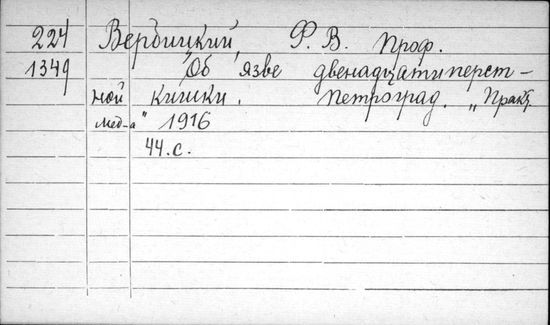 224 Вербицкий, Ф. В. Проф.
1349 Об язве двенадцатиперст-
ной кишки. Петроград. „Практ.
мед-а" 1916
44.с.